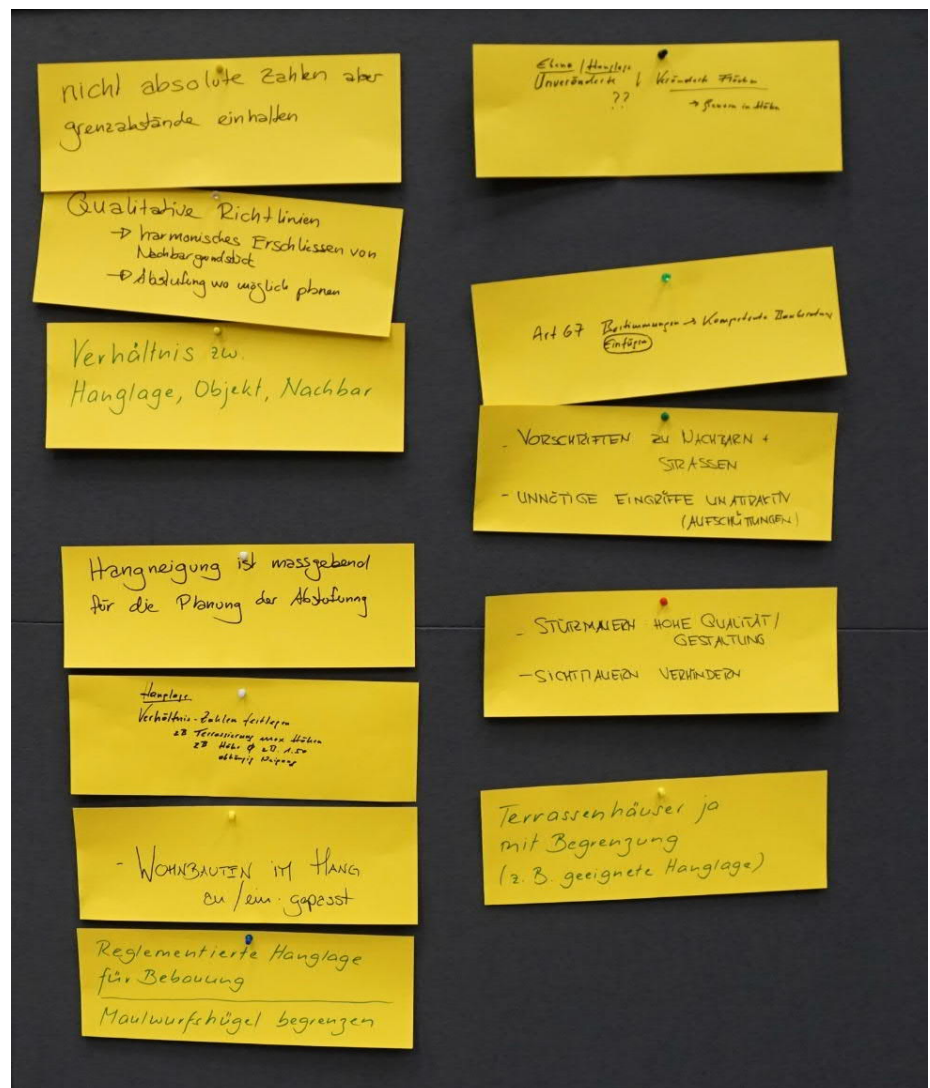 nicht absolute Zahlen aber
grenzabstände einhalten
Qualitative Richtlinien
→ harmonisches Erschliessen von
Nachbargrundstück
→ Abstufung wo möglich planen
Verhältnis zw.
Hanglage, Objekt, Nachbar
Hangneigung ist massgebend
für die Planung der Abstufung
Hanglage
Verhältnis-Zahlen festlegen
zB Terrassierung max Höhen
zB Höhe Ø zB. 1.50
abhängig Neigung
- WOHNBAUTEN IM HANG
an/ein-gepasst
Reglementierte Hanglage
für Bebauung
Maulwurfshügel begrenzen
Ebene / Hanglage
Unverändert
??
Art 67 Bestimmungen → Kompetente
Einfügen
- VORSCHRIFTEN ZU NACHBARN +
STRASSEN
- UNNÖTIGE EINGRIFFE UNATTRAKTIV
(AUFSCHÜTTUNGEN)
- STÜRZMAUERN HOHE QUALITÄT/
GESTALTUNG
- SICHTMAUERN VERHINDERN
Terrassenhäuser ja
mit Begrenzung
(z.B. geeignete Hanglage)